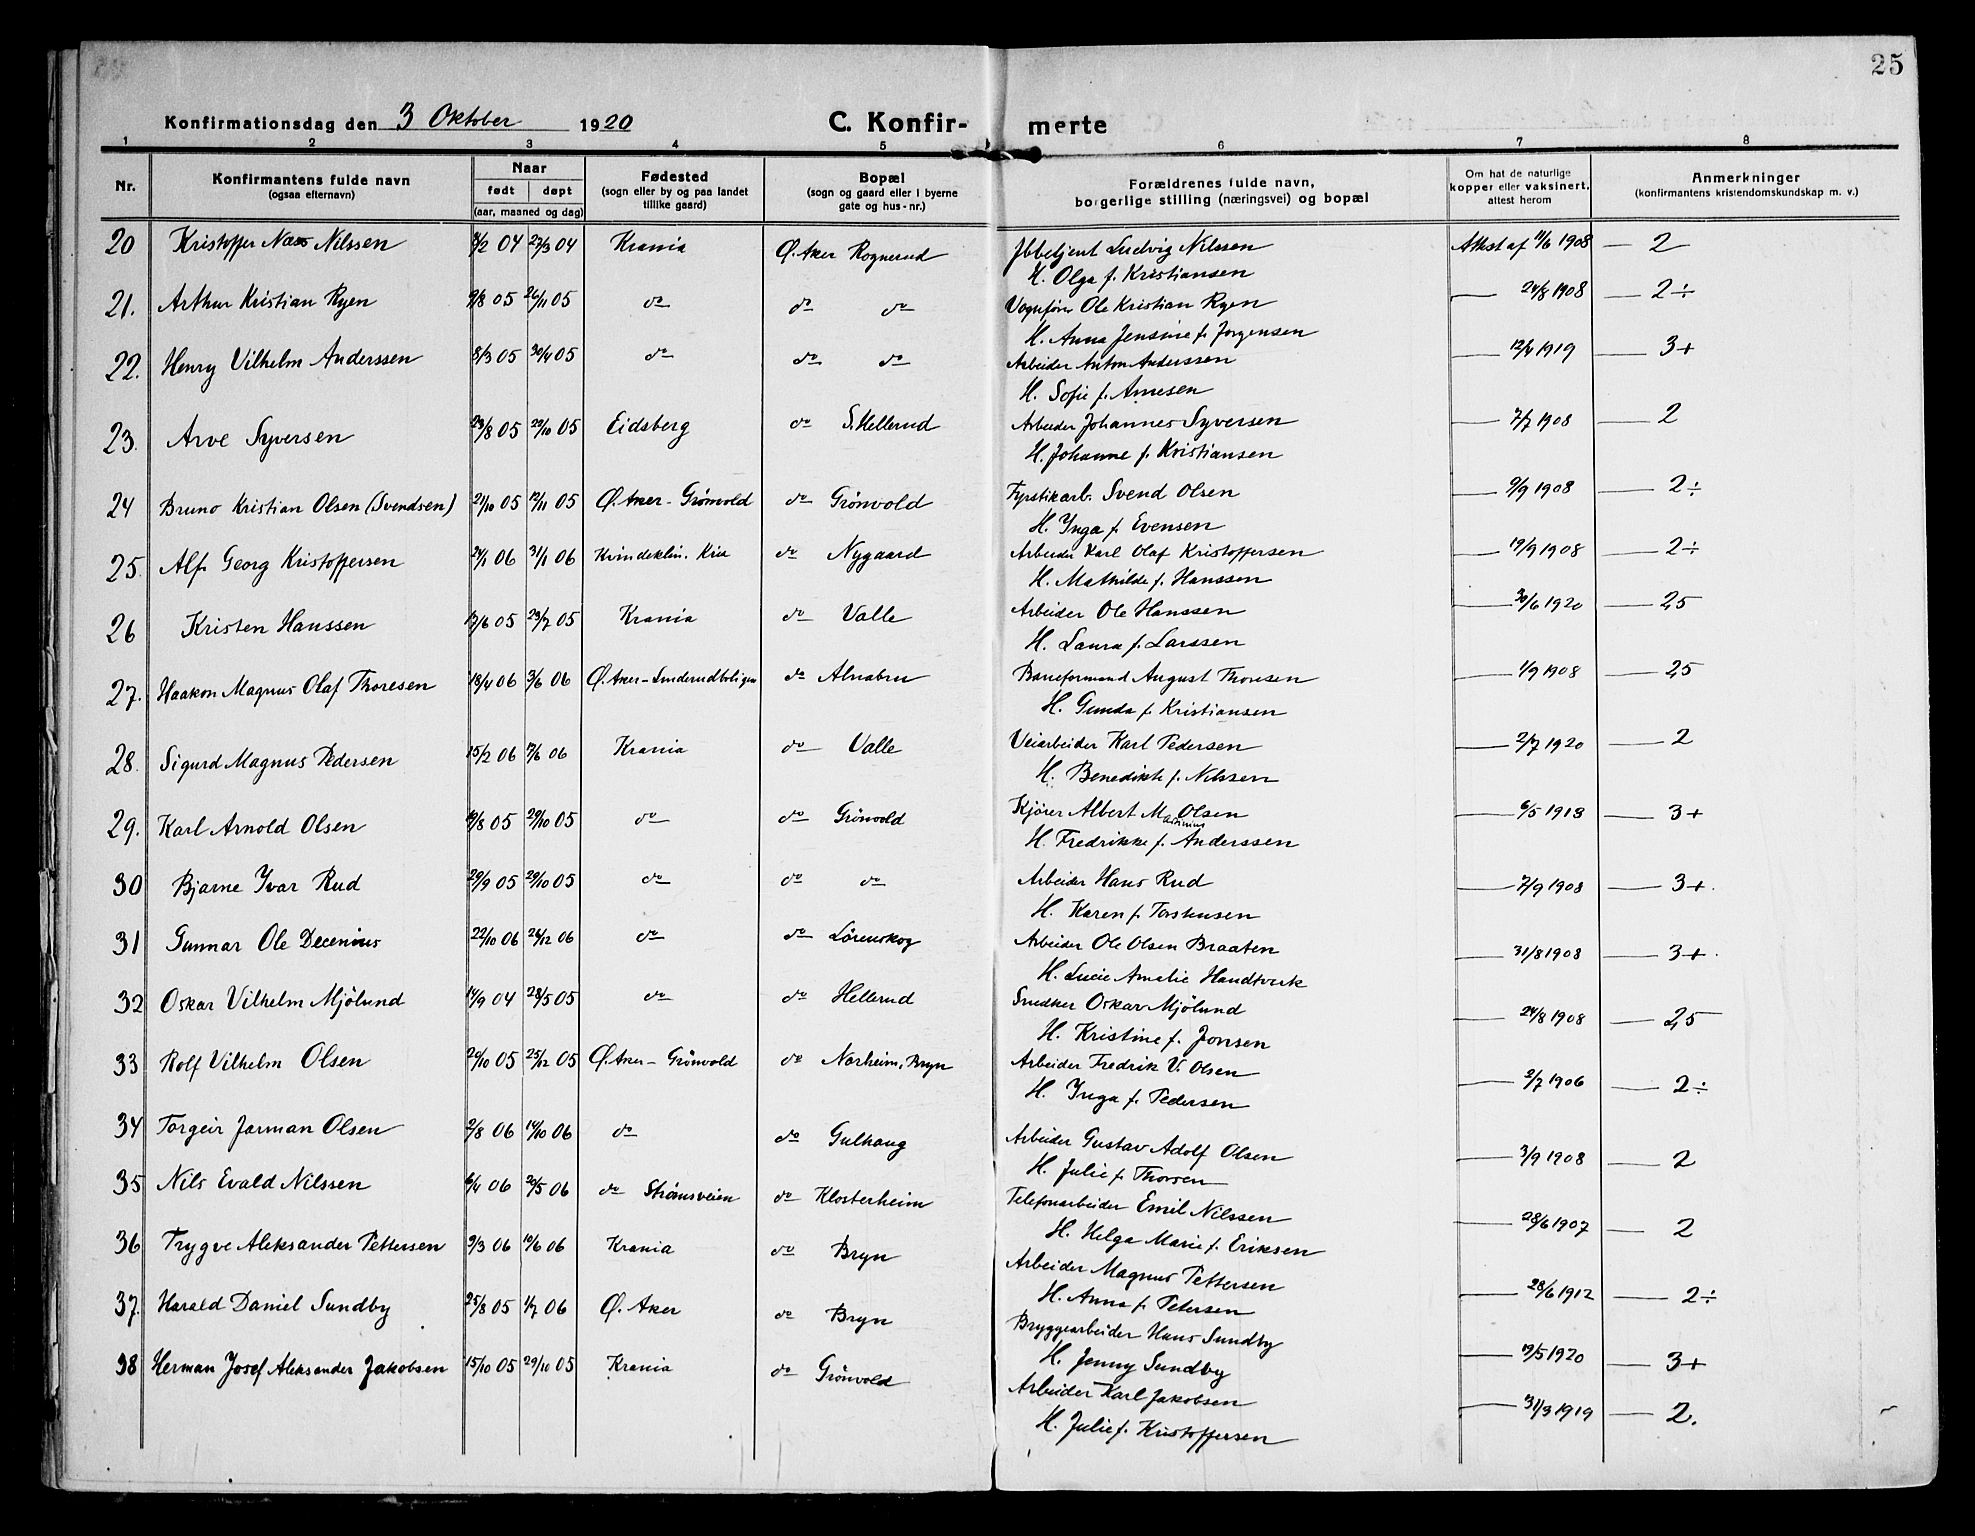 25
Konfirmationsdag den 3 Oktober 1920
C. Konfir- merte
1 2 3 4 5 6 7 8
Nr.
Konfirmantens fulde navn
(ogsaa efternavn)
Naar
født døpt
(aar, maaned og dag)
Fødested
(sogn eller by og paa landet
tillike gaard)
Bopæl
(sogn og gaard eller i byerne
gate og hus-nr.)
Forældrenes fulde navn,
borgerlige stilling (næringsvei) og bopæl
Om hat de naturlige
kopper eller vaksinert,
attest herom
Anmerkninger
(konfirmantens kristendomskundskap m. v.)
20 Kristoffer Næss Nilssen 04 27/3 04 Krania Ø. Aker Rognerud Ludvig Nilssen Attest af 11/6 1908 — 2
H. Olga f. Kristiansen
21. Arthur Kristian Ryen 9/8 05 26/11 05 do do do Vognfører Ole Kristian Ryen — 24/8 1908 — 2÷
H. Anna Jensine f. Jørgensen
22. Henry Vilhelm Anderssen 8/3 05 30/4 05 do do do Arbeider Anton Anderssen — 1919 — 3+
H. Sofie f. Arnesen
23. Arve Syversen 23/8 05 29/10 05 Eidsberg do S. Hellerud Arbeider Johannes Syversen — 7/7 1908 — 2
H. Johanne f. Kristiansen
24 Bruno Kristian Olsen (Svendsen) 21/10 05 12/11 05 Ø. Aker - Grönvold do Grönvold Fyrstikarb. Svend Olsen — 9/9 1908 — 2÷
H. Inga f. Evensen
25. Alf Georg Kristoffersen 24/1 06 31/1 06 Kvindeklin. Kria do Nygaard Arbeider Karl Olaf Kristoffersen — 19/9 1908 — 2÷
H. Mathilde f. Hanssen
26 Kristen Hanssen 13/6 05 23/7 05 Krania do Valle Arbeider Ole Hanssen — 30/6 1920 — 2,5
H. Laura f. Larssen
27. Haakon Magnus Olaf Thoresen 18/4 06 3/6 06 Ø. Aker - Linderudboligen do Alnabru Baneformand August Thoresen — 1/9 1908 — 2,5
H. Gunda f. Kristiansen
28. Sigurd Magnus Pedersen 15/2 06 17/6 06 Krania do Valle Veiarbeider Karl Pedersen — 2/7 1920 — 2
H. Benedikte f. Nilssen
29. Karl Arnold Olsen 19/8 05 29/10 05 do do Grönvold Kjører Albert Martinius Olsen — 6/5 1913 — 3+
H. Fredrikke f. Anderssen
30 Bjarne Ivar Rud 29/9 05 29/10 05 do do do Arbeider Hans Rud — 7/9 1908 — 3+.
H. Karen f. Torstensen
31 Gunnar Ole Decenius 22/10 06 26/12 06 do do Lørenskog Arbeider Ole Olsen Braaten — 31/8 1908 — 3+.
H. Lucie Amalie Handtverk
32 Oskar Vilhelm Mjölund 14/9 04 28/5 05 do do Hellerud Snedker Oskar Mjölund — 24/8 1908 — 2,5
H. Kristine f. Jonsen
33 Rolf Vilhelm Olsen 20/10 05 25/12 05 Ø. Aker - Grönvold do Norheim, Bryn Arbeider Fredrik V. Olsen — 2/7 1906 — 2÷
H. Inga f. Pedersen
34 Torgeir Jarman Olsen 2/8 06 14/10 06 do do Gulhaug Arbeider Gustav Adolf Olsen — 3/9 1908 — 2
H. Julie f. Thorsen
35 Nils Evald Nilssen 6/4 06 20/5 06 do Strömsveien do Klosterheim Telefonarbeider Emil Nilssen — 28/6 1907 — 2
H. Helga Marie f. Eriksen
36 Trygve Aleksander Pettersen 9/3 06 10/6 06 Krania do Bryn Arbeider Magnus Pettersen — 28/6 1912 — 2÷
H. Anna f. Petersen
37. Harald Daniel Sundby 25/8 05 1/7 06 Ø. Aker do Bryn Bryggearbeider Hans Sundby — 19/5 1920 — 3+
H. Jenny Sundby
38 Herman Josef Aleksander Jakobsen 15/10 05 29/10 05 Krania do Grönvold Arbeider Karl Jakobsen — 31/3 1919 — 2.
H. Julie f. Kristoffersen